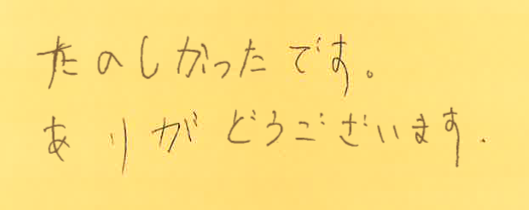 たのしかったです。
ありがどうございます.